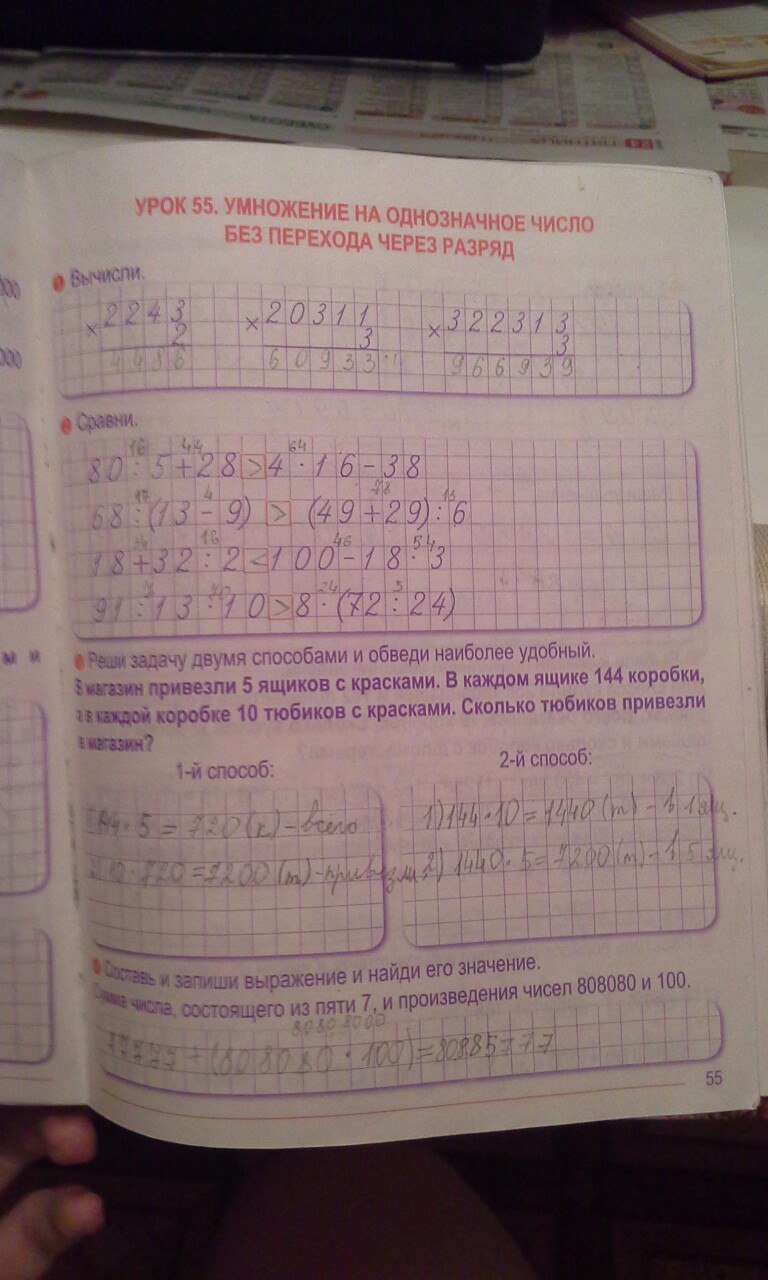 УРОК 55. УМНОЖЕНИЕ НА ОДНОЗНАЧНОЕ ЧИСЛО
БЕЗ ПЕРЕХОДА ЧЕРЕЗ РАЗРЯД
Вычисли.
× 2243 × 20311 × 322313
2 3 3
4486 60933 966939
Сравни.
16 44 64
80:5+28>4·16-38
17 4 78 13
68:(13-9)>(49+29):6
34 16 46 54
18+32:2<100-18·3
7 70 24 3
91:13·10>8·(72:24)
Реши задачу двумя способами и обведи наиболее удобный.
В магазин привезли 5 ящиков с красками. В каждом ящике 144 коробки,
а в каждой коробке 10 тюбиков с красками. Сколько тюбиков привезли
в магазин?
1-й способ: 2-й способ:
144·5=720(к)-всего 1)144·10=1440(т)-в 1 ящ.
10·720=7200(т)-привезли 2) 1440·5=7200(т)-в 5 ящ.
Составь и запиши выражение и найди его значение.
Сумма числа, состоящего из пяти 7, и произведения чисел 808080 и 100.
80808000
77777+(808080·100)=80885777
55